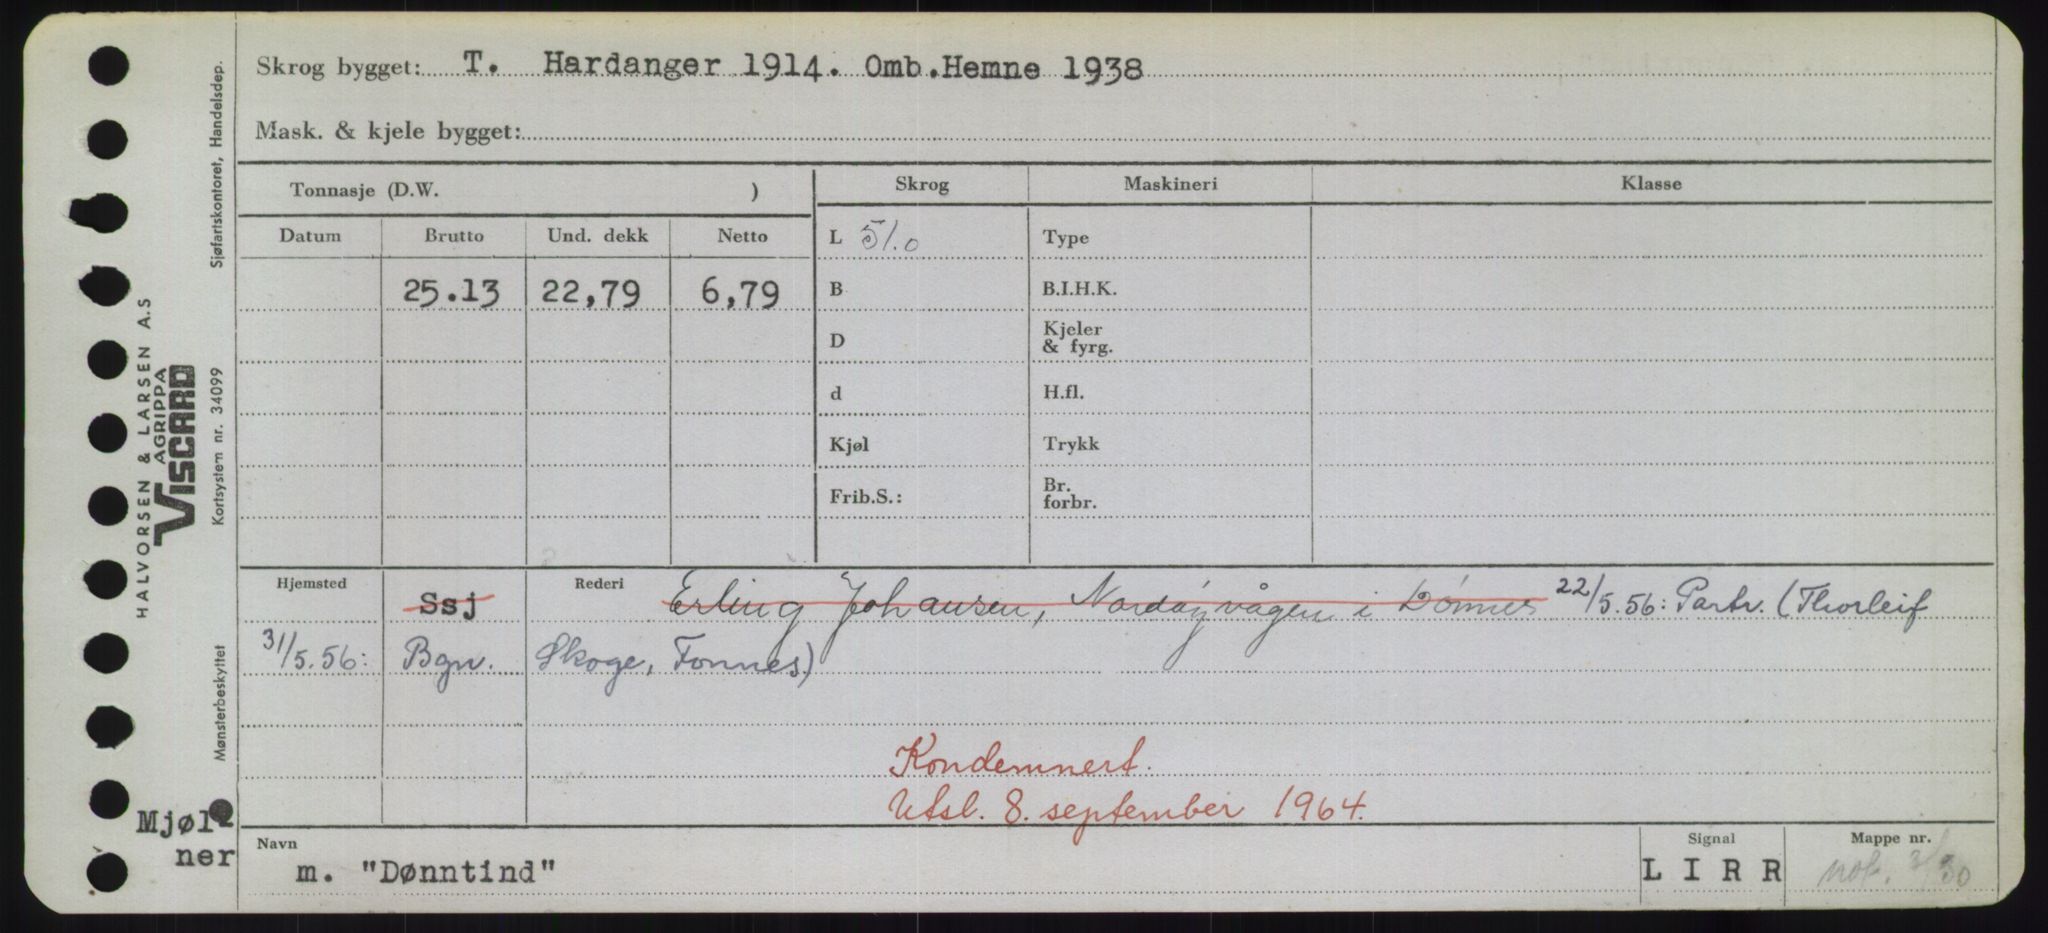 Skrog bygget: T. Hardanger 1914. Omb.Hemne 1938
Mask. & kjele bygget:
Tonnasje (D.W. )
Skrog Maskineri Klasse
Datum Brutto Und. dekk Netto
L 51.0 Type
25.13 22,79 6,79
B B.I.H.K.
D Kjeler & fyrg.
d H.fl.
Kjøl Trykk
Frib.S.: Br. forbr.
Hjemsted Ssj Rederi Erling Johansen, Nordøyvågen i Dønnes 22/5.56: Partr. (Thorleif
31/5.56: Bgn. Skoge, Fonnes)
Kondemnert.
Utsl. 8. september 1964.
Navn m. "Dønntind"
Signal LIRR
Mappe nr. 3/30
Mjøl-
ner
HALVORSEN & LARSEN A.S
AGRIPPA
VISCARD
Kortsystem nr. 34099
Sjøfartskontoret, Handelsdep.
Mønsterbeskyttet